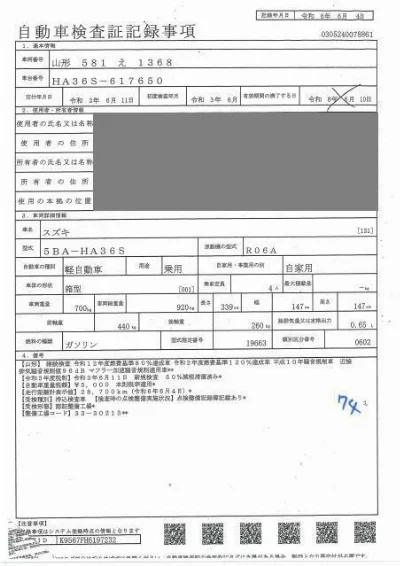 記録年月日 令和 6年 6月 4日
自動車検査証記録事項
0305240078861
1. 基本情報
車両番号 山形 581 え 1368
車台番号 HA36S-617650
交付年月日 令和 3年 6月 11日 初度検査年月 令和 3年 6月 有効期間の満了する日 令和 6年 6月 10日
2. 使用者・所有者情報
使用者の氏名又は名称
使用者の住所
所有者の氏名又は名称
所有者の住所
使用の本拠の位置
3. 車両詳細情報
車名 スズキ [131]
型式 5BA-HA36S 原動機の型式 R06A
自動車の種別 軽自動車 用途 乗用 自家用・事業用の別 自家用
車体の形状 箱型 [001] 乗車定員 4人 最大積載量 -kg
車両重量 700kg 車両総重量 920kg 長さ 339cm 幅 147cm 高さ 147cm
前軸重 440kg 後軸重 260kg 総排気量又は定格出力 0.65 L
燃料の種類 ガソリン 型式指定番号 19663 類別区分番号 0602
4. 備考
[山形] 継続検査 令和12年度燃費基準80%達成車 令和2年度燃費基準120%達成車 平成10年騒音規制車 近接
排気騒音規制値96dB マフラー加速騒音規制適用車*
[令和3年度税制] 令和3年6月11日 新規検査 50%減税措置済み*
[自動車重量税額] ¥5,000 本則税率適用*
[走行距離計表示値] 28,700km (令和6年6月4日)*
[受検種別] 持込検査車 [検査時の点検整備実施状況] 点検整備記録簿記載あり*
[受検形態] 認証整備工場*
[整備工場コード] 33-30213*
74
[注意事項]
K9567FH6197232